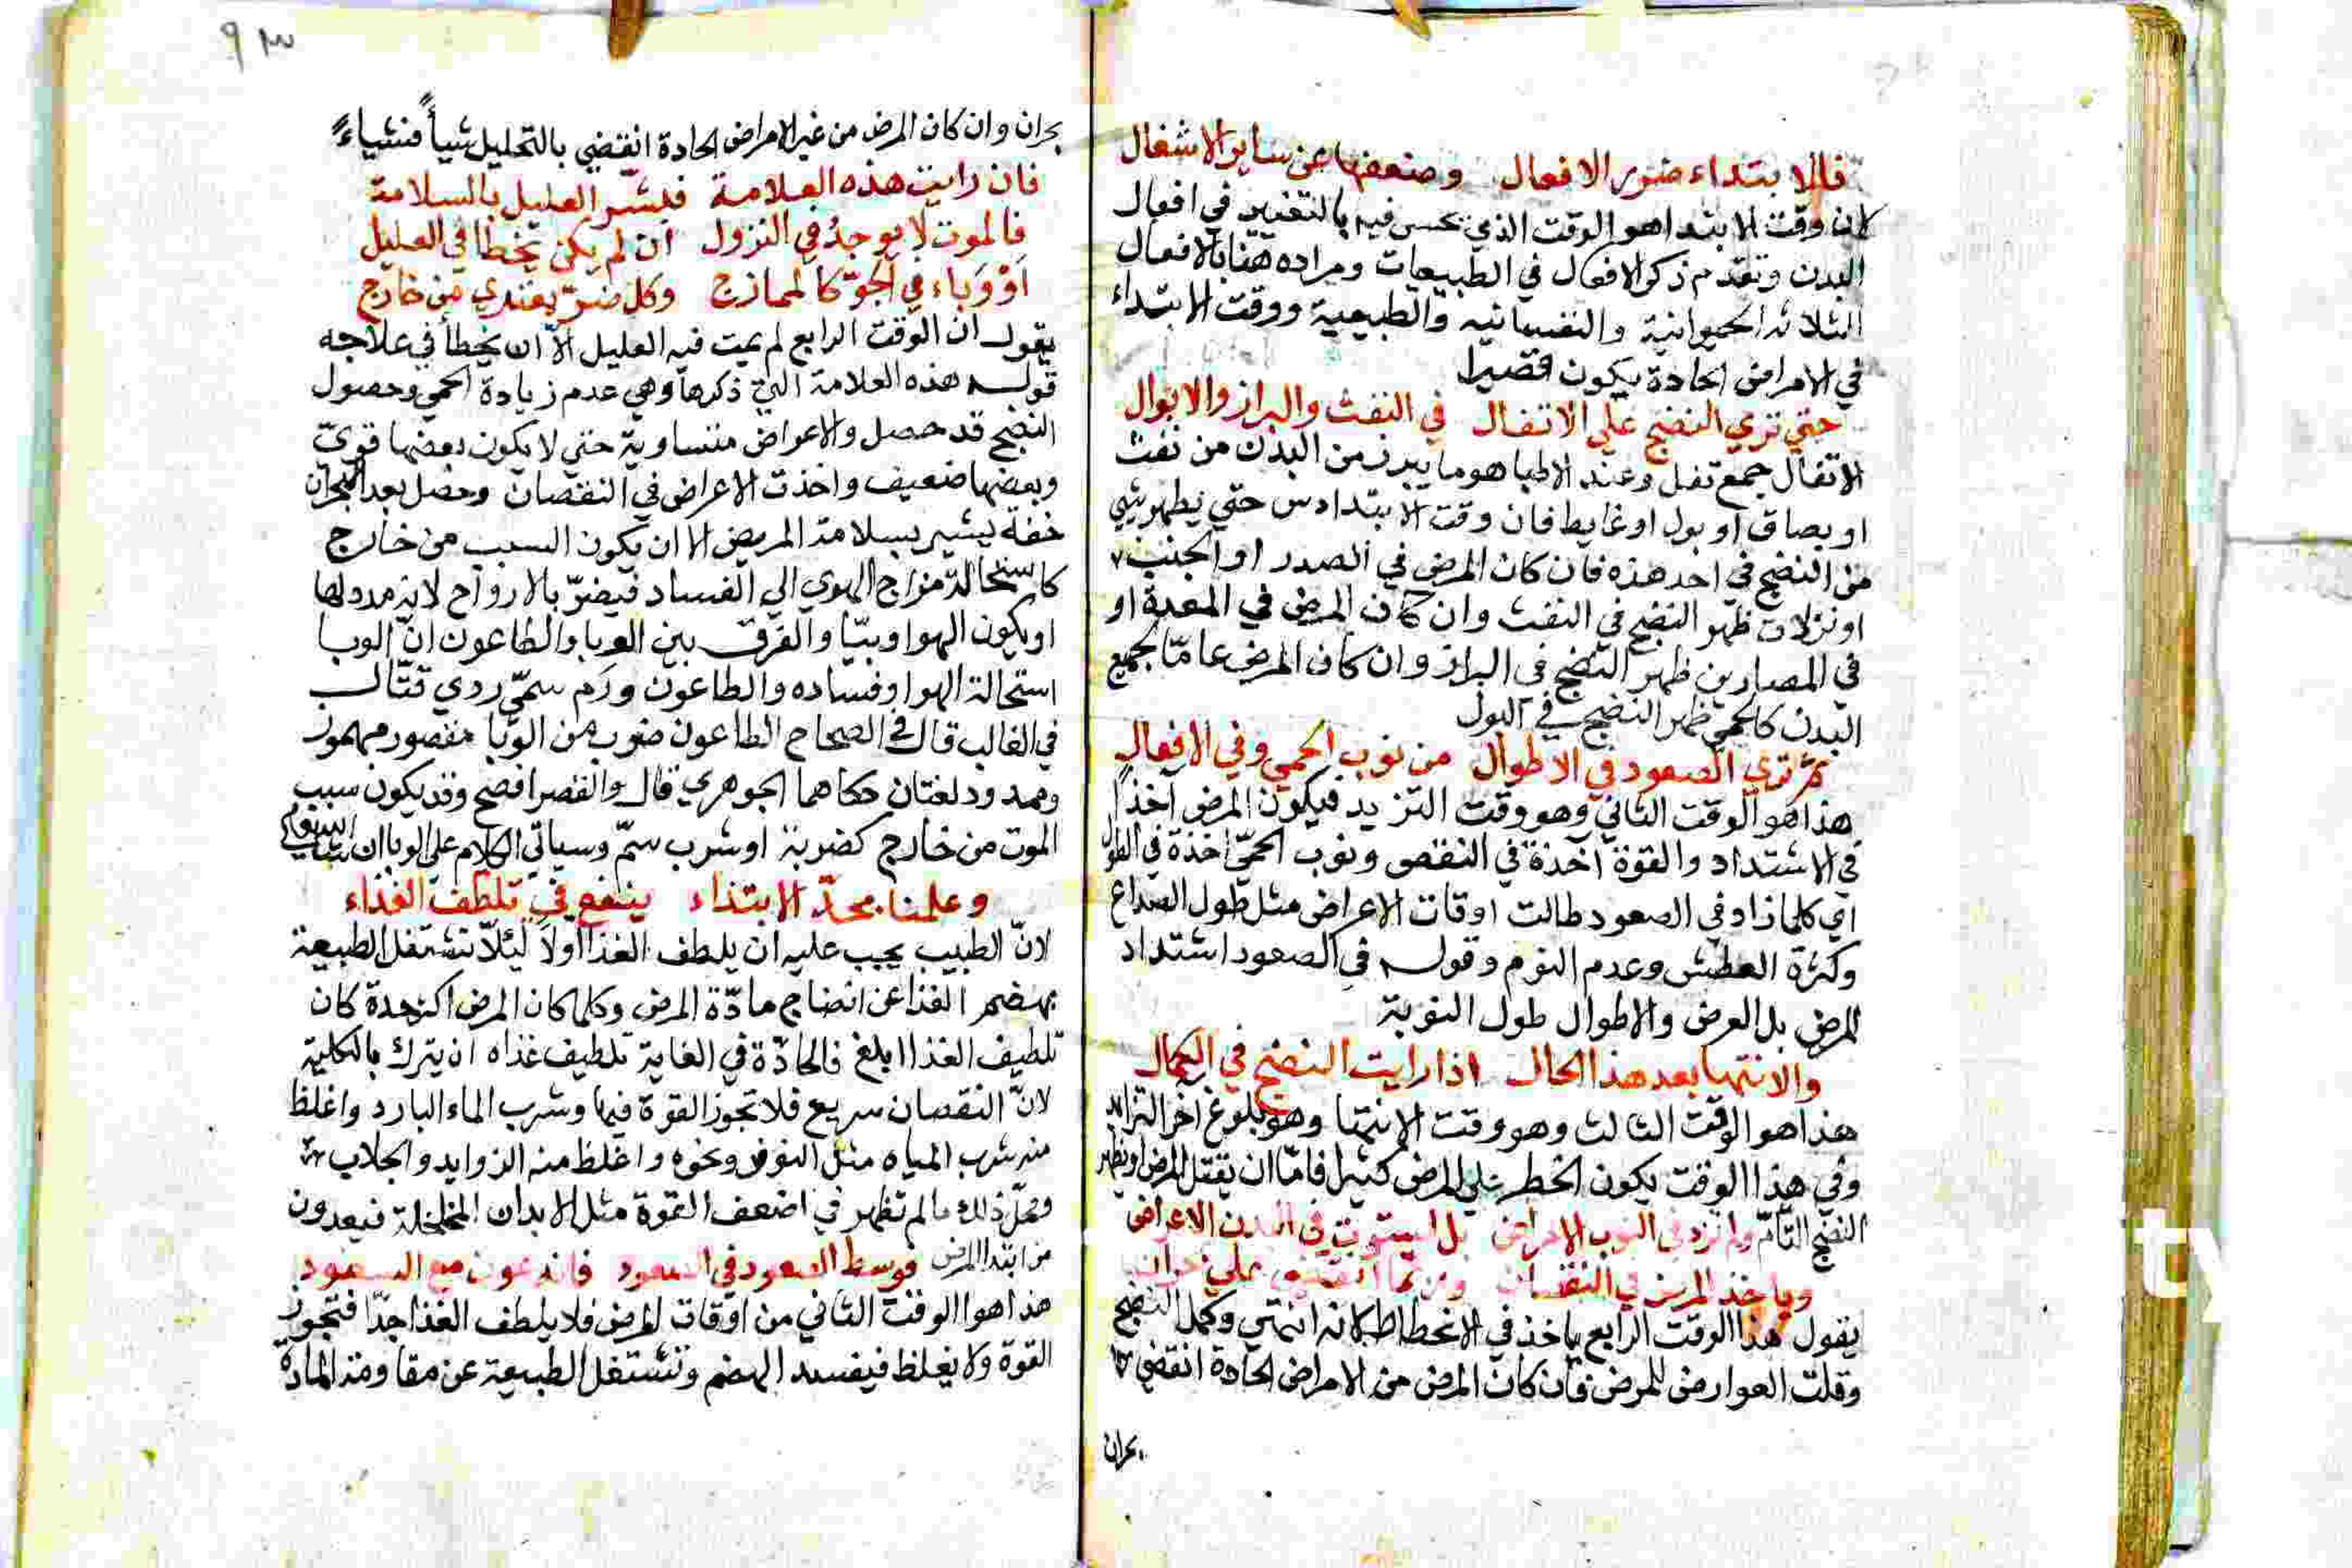 فالابتداء ضرر الافعال وضعفها عن ساير الاشغال
لان وقت الابتدا هو الوقت الذي تحس فيه بالتغيير في افعال
البدن وتقدم ذكر الافعال في الطبيعات ومراده هنا بالافعال
الثلاثة الحيوانية والنفسانيه والطبيعية ووقت الابتداء
في الامراض الحادة يكون قصيرا
حتي تري النضج علي الاتفال في النفث والبراز والابوال
الاتفال جمع تفل وعند الاطبا هو ما يبرز من البدن من نفث
او بصاق او بول او غايط فان وقت الابتدا من حتي يظهر شي
من النضج في احد هذه فان كان المرض في الصدر او الجنب
او نزلات ظهر النضج في النفث وان كان المرض في المعدة او
في المصارين ظهر النضج في البراز وان كان المرض عامّا لجميع
البدن كالحمي ظهر النضج في البول
ثم تري الصعود في الاطوال من نوب الحمي وفي الافعال
هذا هو الوقت الثاني وهو وقت التزيد فيكون المرض آخذاً
في الاشتداد والقوة آخذة في النقص ونوب الحمّي اخذة في الطول
اي كلما زاد في الصعود طالت اوقات الاعراض مثل طول الصداع
وكثرة العطش وعدم النوم وقوله في الصعود اشتداد
المرض بل العرض والاطوال طول النوبة
والانتها بعد هذا الحال اذا رايت النضج في الكمال
هذا هو الوقت الثالث وهو وقت الانتها وهو بلوغ آخر التزايد
وفي هذا الوقت يكون الخطر علي المرض كثيرا فامّا ان يقتل المرض او يظهر
النضج التّامّ ولم تزد في النوب الامراض بل استوت في البدن الاعراض
وياخذ المرض في النقصان وربما انقضي علي بحران
يقول هذا الوقت الرابع ياخذ في الانحطاط كانه انتهي وكمل النضج
وقلت العوارض للمرض فان كان المرض من الامراض الحادة انقضي
بحران
٩٣
بحران وان كان المرض من غير الامراض الحادة انقضي بالتحليل شيأً فشياءً
فان رايت هذه العلامة فبشّر العليل بالسلامة
فالموت لا يوجد في النزول ان لم يكن تخطا في العليل
اَوْ وَبَاء في الجوّ كالممازج وكل ضرّ يعتدي من خارج
يقول ان الوقت الرابع لم يمت فيه العليل الّا ان يخطأ في علاجه
قوله هذه العلامة التي ذكرها وهي عدم زيادة الحمي وحصول
النضج قد حصل والاعراض متساوية حتي لا يكون بعضها قويّ
وبعضها ضعيف واخذت الاعراض في النقصان وحصل بعد البحران
خفة يشير بسلامة المريض الا ان يكون السبب من خارج
كاستحالة مزاج الهوي الي الفساد فيضرّ بالارواح لانه مدد لها
او يكون الهوا وبيّا والفرق بين الوبا والطاعون انّ الوبا
استحالة الهوا وفساده والطاعون ورَم سمّي ردي قتّال
في الغالب قال في الصحاح الطاعون ضرب من الوبا مقصور مهموز
وممدود لغتان حكاهما الجوهري قال والقصر افصح وقد يكون سبب
الموت من خارج كضربة او شرب سمّ وسياتي الكلام علي الوبا ان
وعلمنا بحدّ الابتداء ينفع في تلطف الغذاء
لانّ الطبيب يجب عليه ان يلطف الغذا اولاً ليّلا تشتغل الطبيعة
بهضم الغذا عن انضاج مادّة المرض وكلما كان المرض اكثر حدة كان
تلطيف الغذا ابلغ فالحادّة في الغاية تلطيف غذاه ان يترك بالكلية
لانّ النقصان سريع فلا تجوز القوة فيها وشرب الماء البارد واغلظ
منه شرب المياه مثل النوفر ونحوه واغلظ منه الزوايد والجلاب
ومحلّ ذلك ما لم تظهر في اضعف القوة مثل الابدان المخلخلة فيعدون
من ابتدا المرض فوسط الصعود في الصعود فانه عون مع السعود
هذا هو الوقت الثاني من اوقات المرض فلا يلطف الغذا جدّا فتجوز
القوة ولا يغلظ فيفسد الهضم وتشتغل الطبيعة عن مقاومة المادة